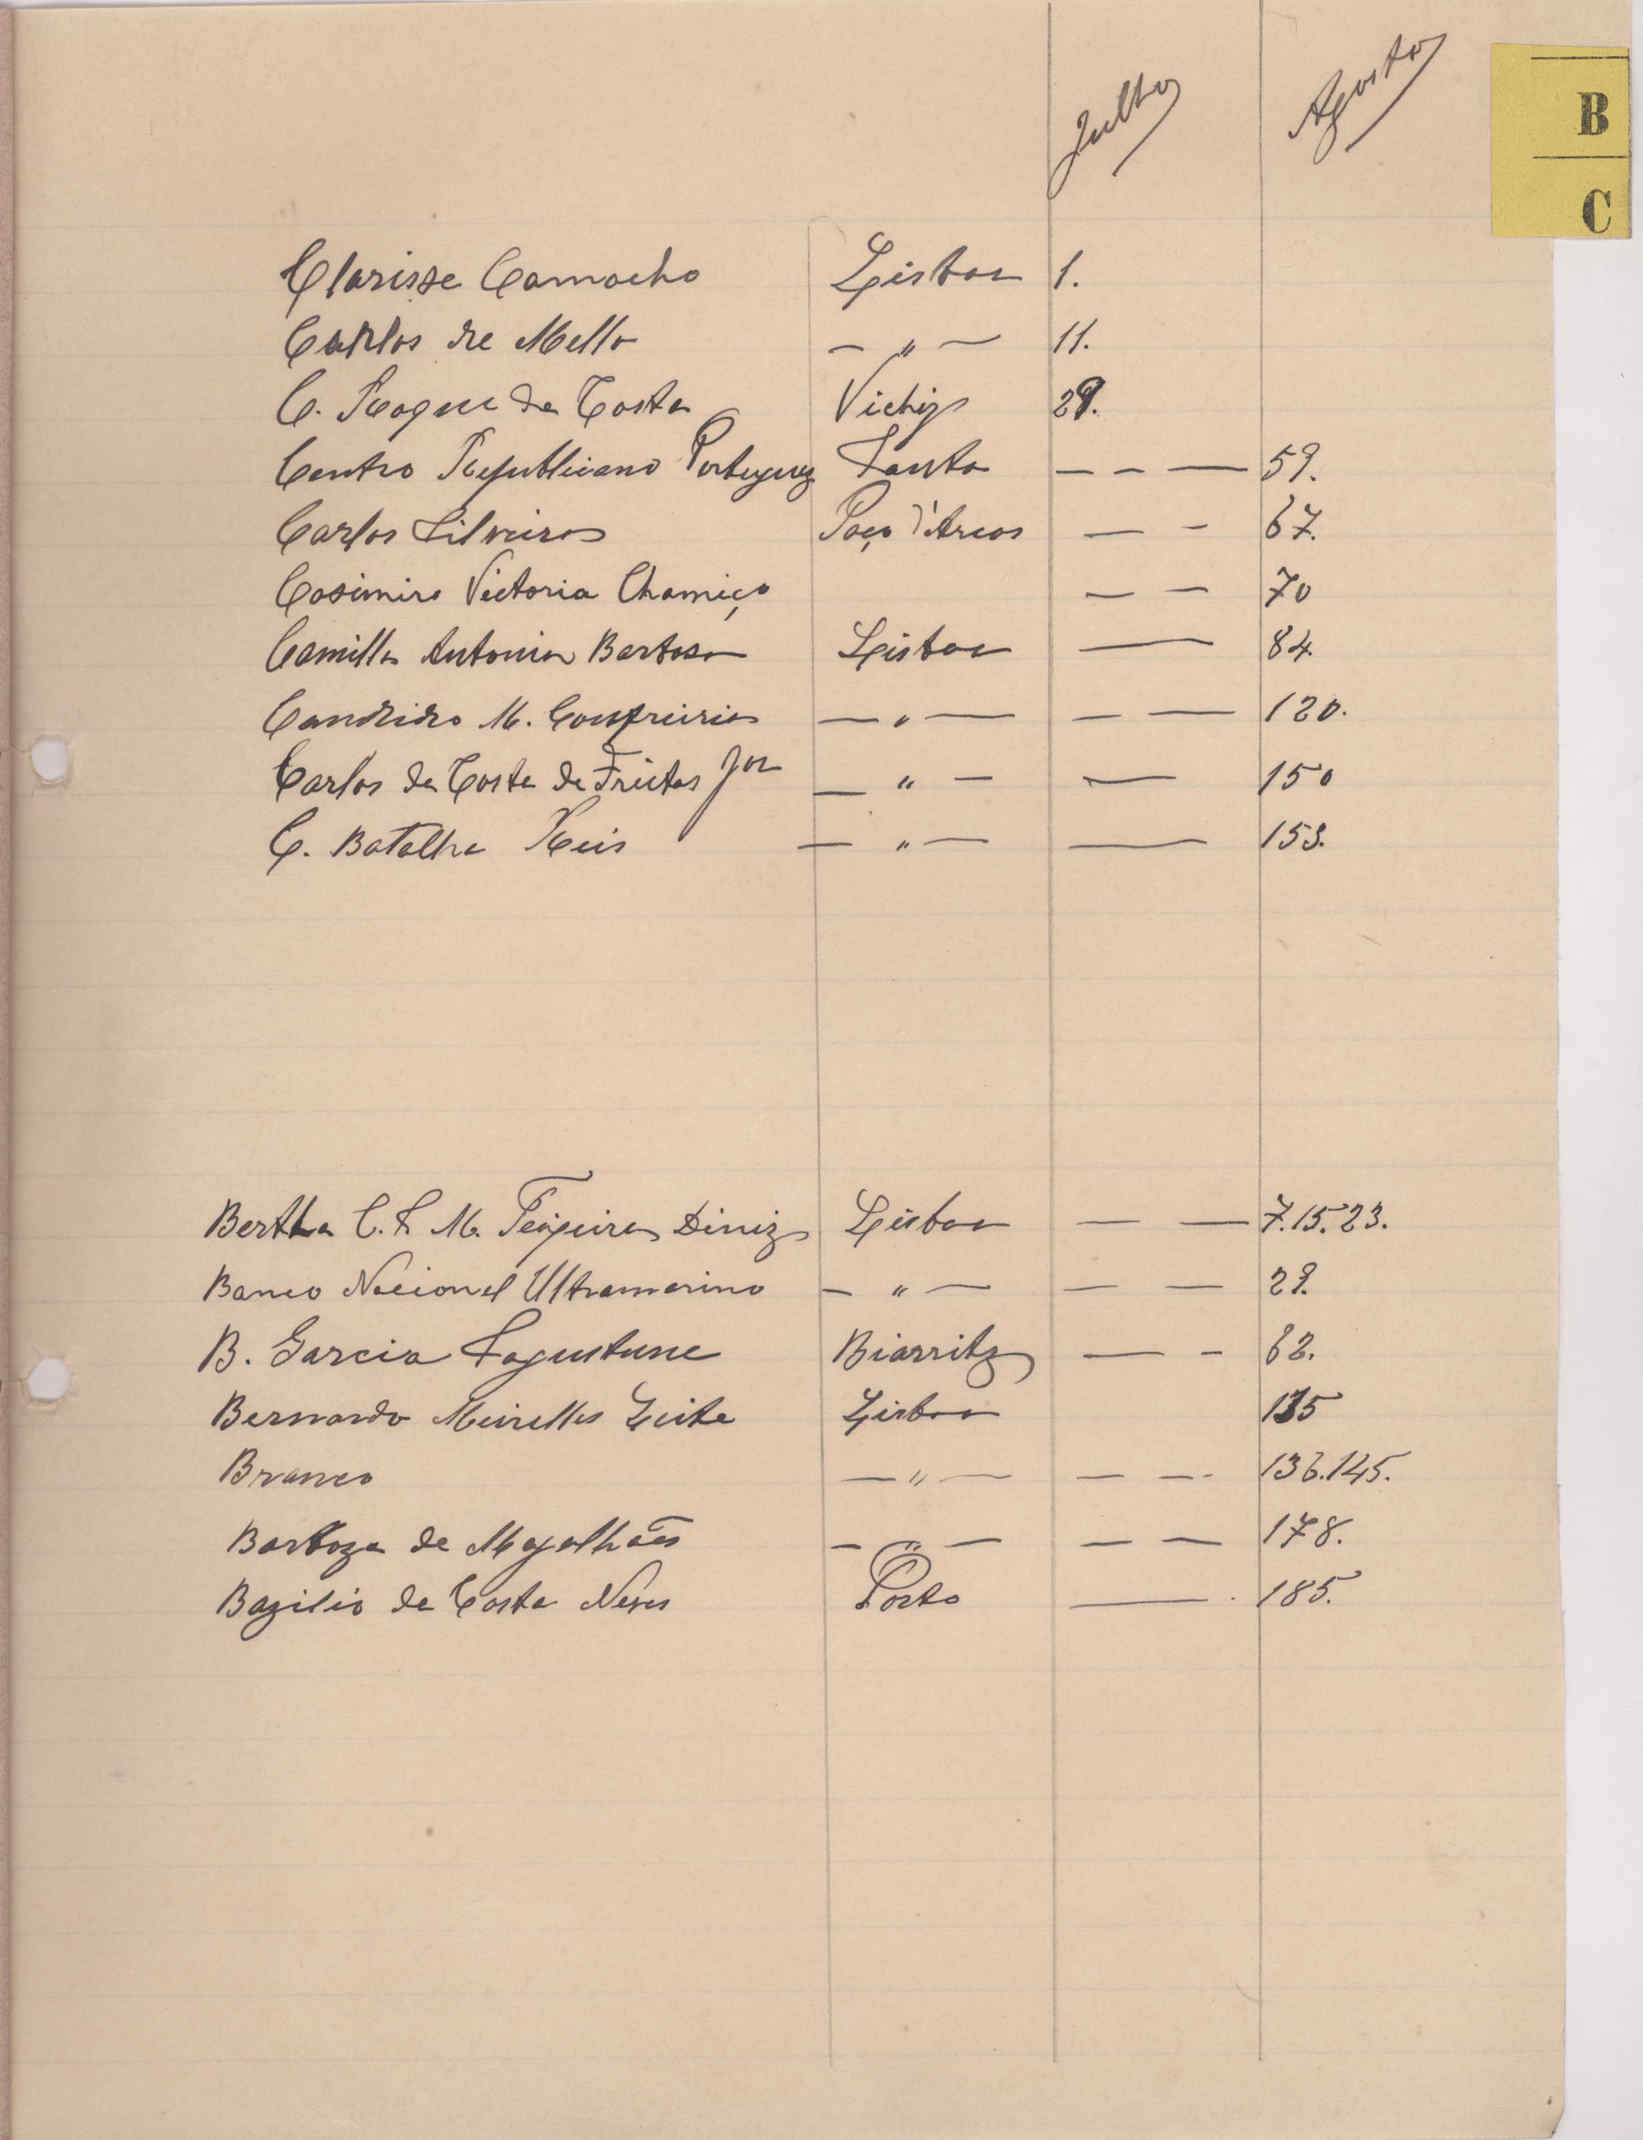 Julho Agosto
B
C
Clarisse Camacho Lisboa 1.
Carlos de Mello — " — 11.
C. Roque da Costa Vichy 29.
Centro Republicano Portuguez — — — 59.
Carlos Silveira Paço d'Arcos — — 67.
Casimiro Victoria Chamiço — — 70
Camillo Antonio Barbosa Lisboa — 84.
Candido M. — " — — — 120.
Carlos da Costa de Freitas Jor — " — — 150
C. Batalha Reis — " — — 153.
Bertha C. S. M. Teixeira Diniz Lisboa — — 7.15.23.
Banco Nacional Ultramarino — " — — — 29.
B. Garcia Biarritz — - 62.
Bernardo Meirelles Leite Lisboa 135
Branco — " — — — 136.145.
Barboza de Magalhães — " — — — 178.
Bazilio da Costa Neves Porto — 185.